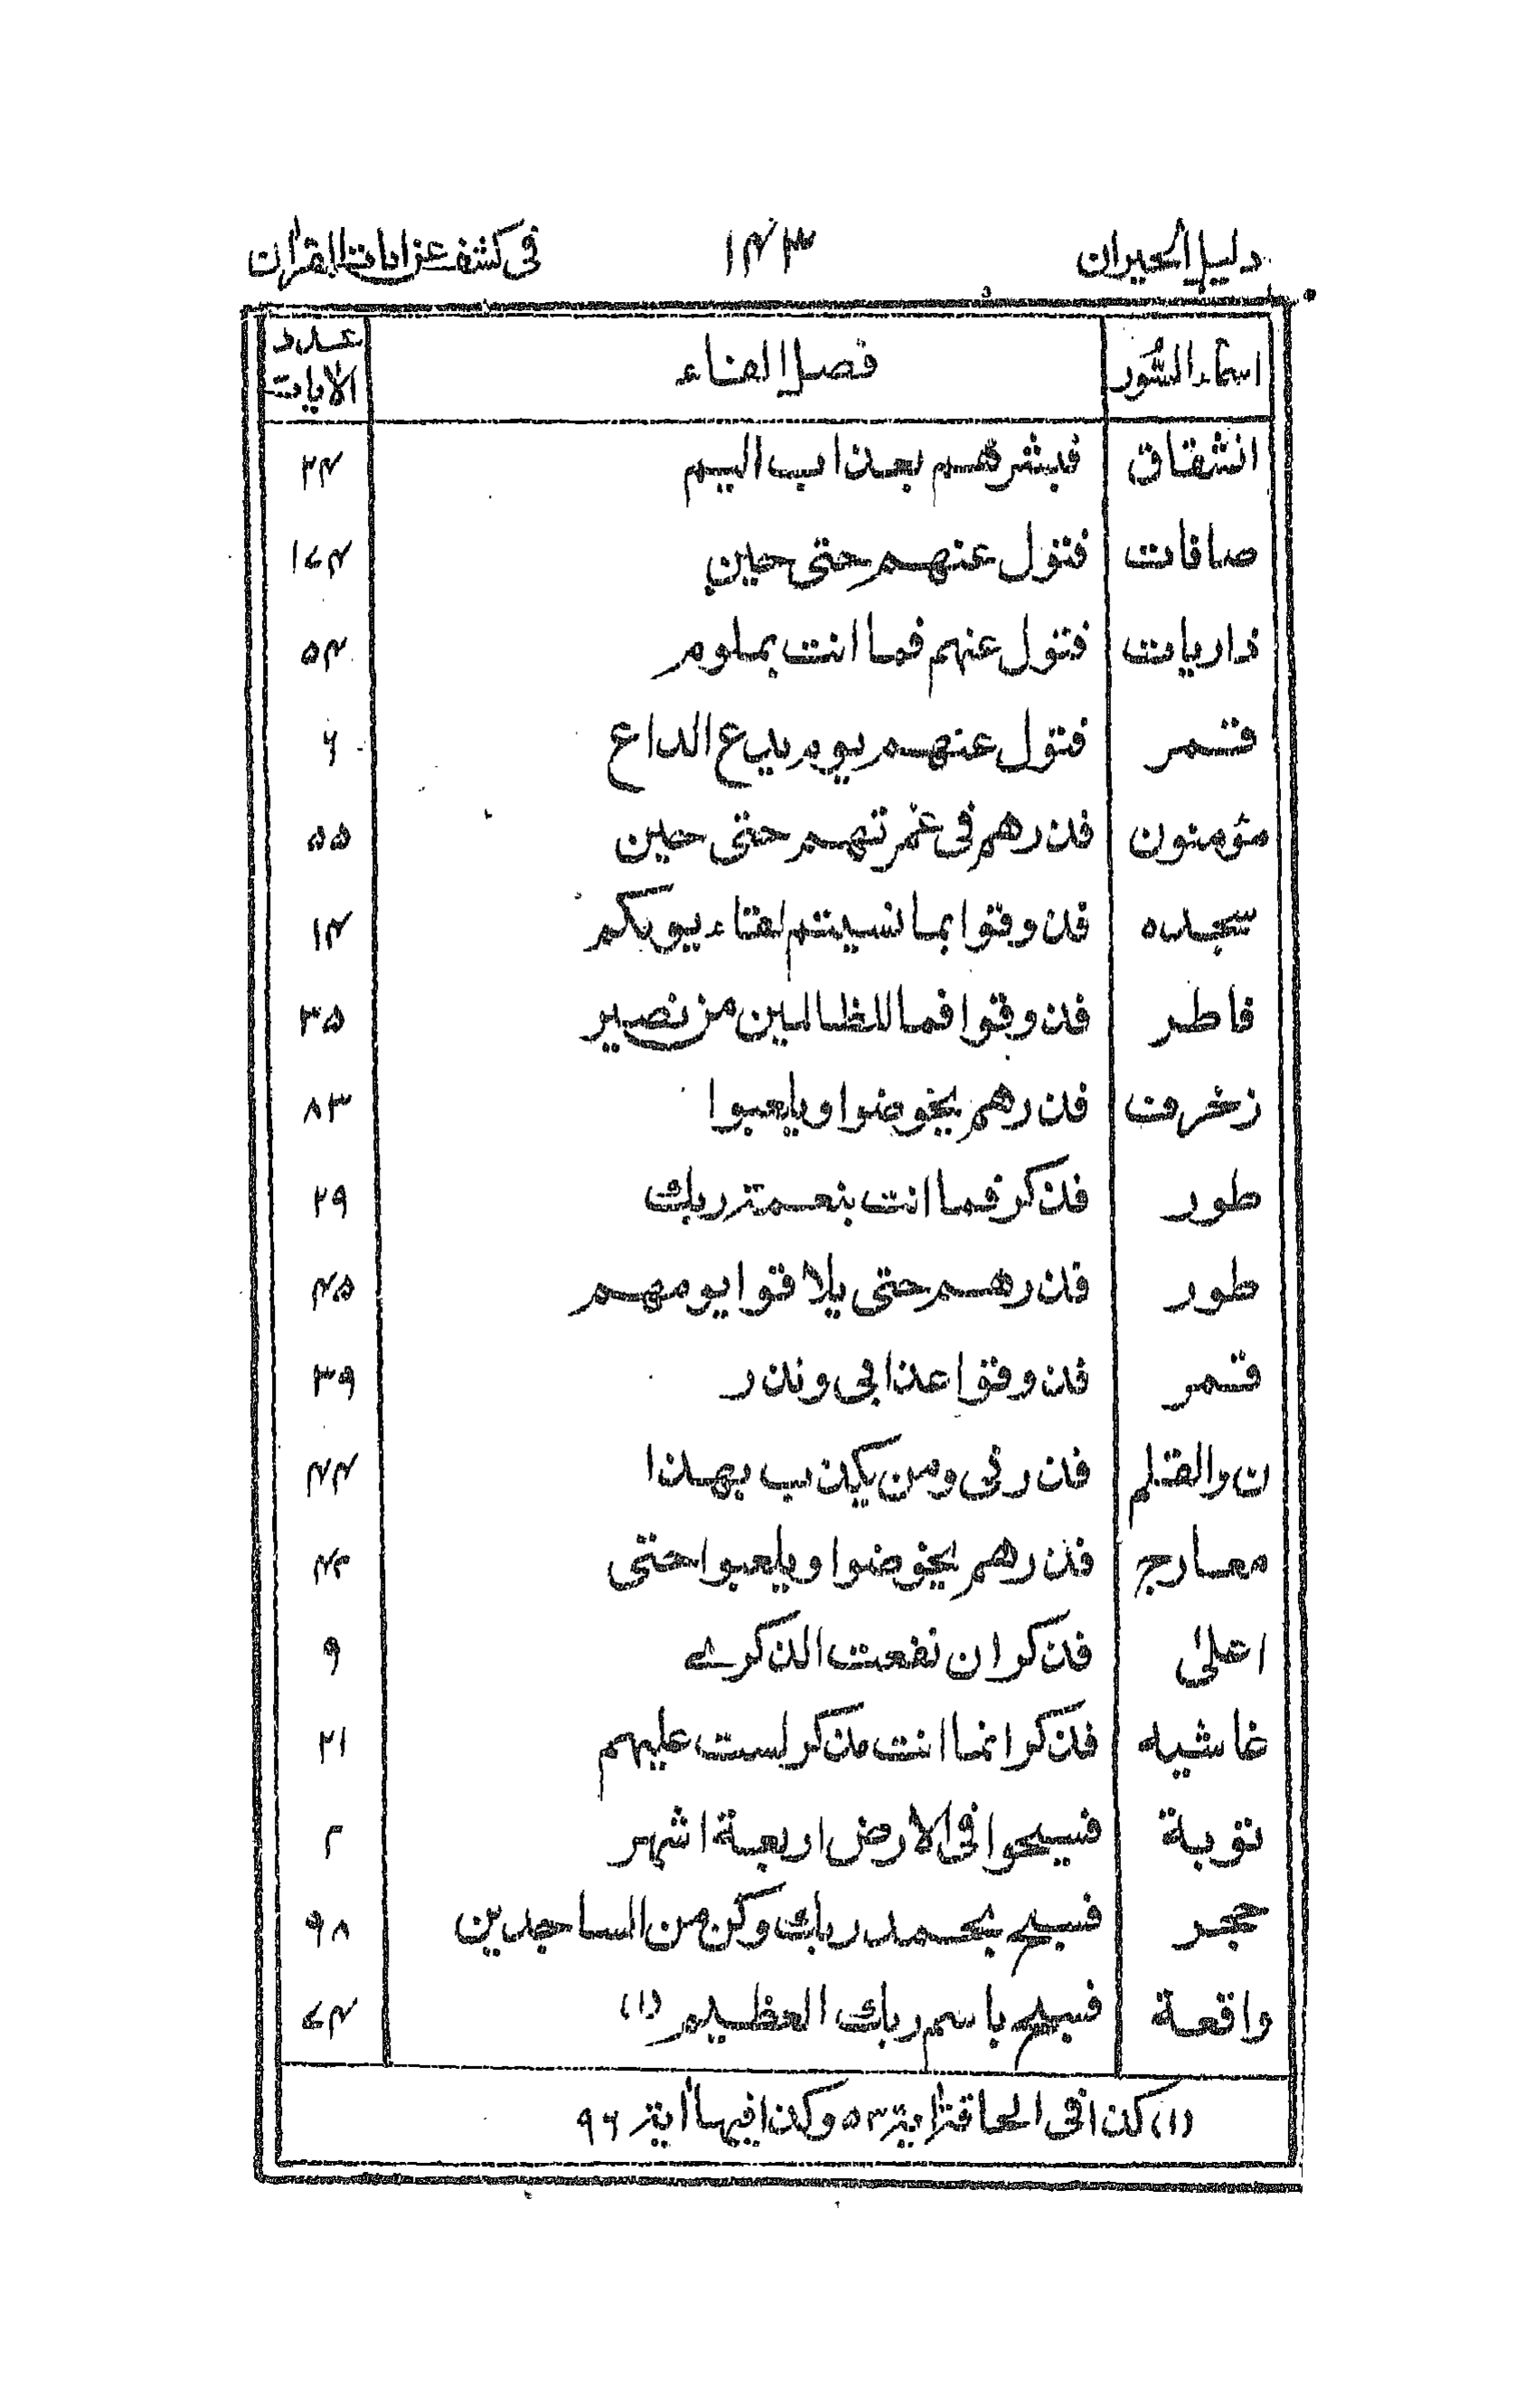 دليل الحيران ١۴٣ فى كشف عن ايات القرآن
اسماء السُّور فصل الفاء عدد الاٰيات
انشقاق فبشرهم بعذاب اليم ٢۴
صافات فتول عنهم حتى حين ١٧۴
ذاريات فتول عنهم فما انت بملوم ۵۴
قمر فتول عنهم يوم يدع الداع ۶
مؤمنون فذرهم فى غمرتهم حتى حين ۵۵
سجده فذوقوا بما نسيتم لقاء يومكم ١۴
فاطر فذوقوا فما للظالمين من نصير ٣۵
زخرف فذرهم يخوضوا ويلعبوا ٨٣
طور فذكر فما انت بنعمة ربك ٢٩
طور فذرهم حتى يلاقوا يومهم ۴۵
قمر فذوقوا عذابى ونذر ٣٩
ن والقلم فذرنى ومن يكذب بهذا ۴۴
معارج فذرهم يخوضوا ويلعبوا حتى ۴٢
اعلىٰ فذكر ان نفعت الذكرے ٩
غاشيه فذكر انما انت مذكر لست عليهم ٢١
توبة فسيحوا فى الارض اربعة اشهر ٢
حجر فسبح بحمد ربك وكن من الساجدين ٩٨
واقعة فسبح باسم ربك العظيم (١) ٧۴
(١) كذا فى الحاقة اٰية ۵٢ وكذا فيها اٰية ٩۶